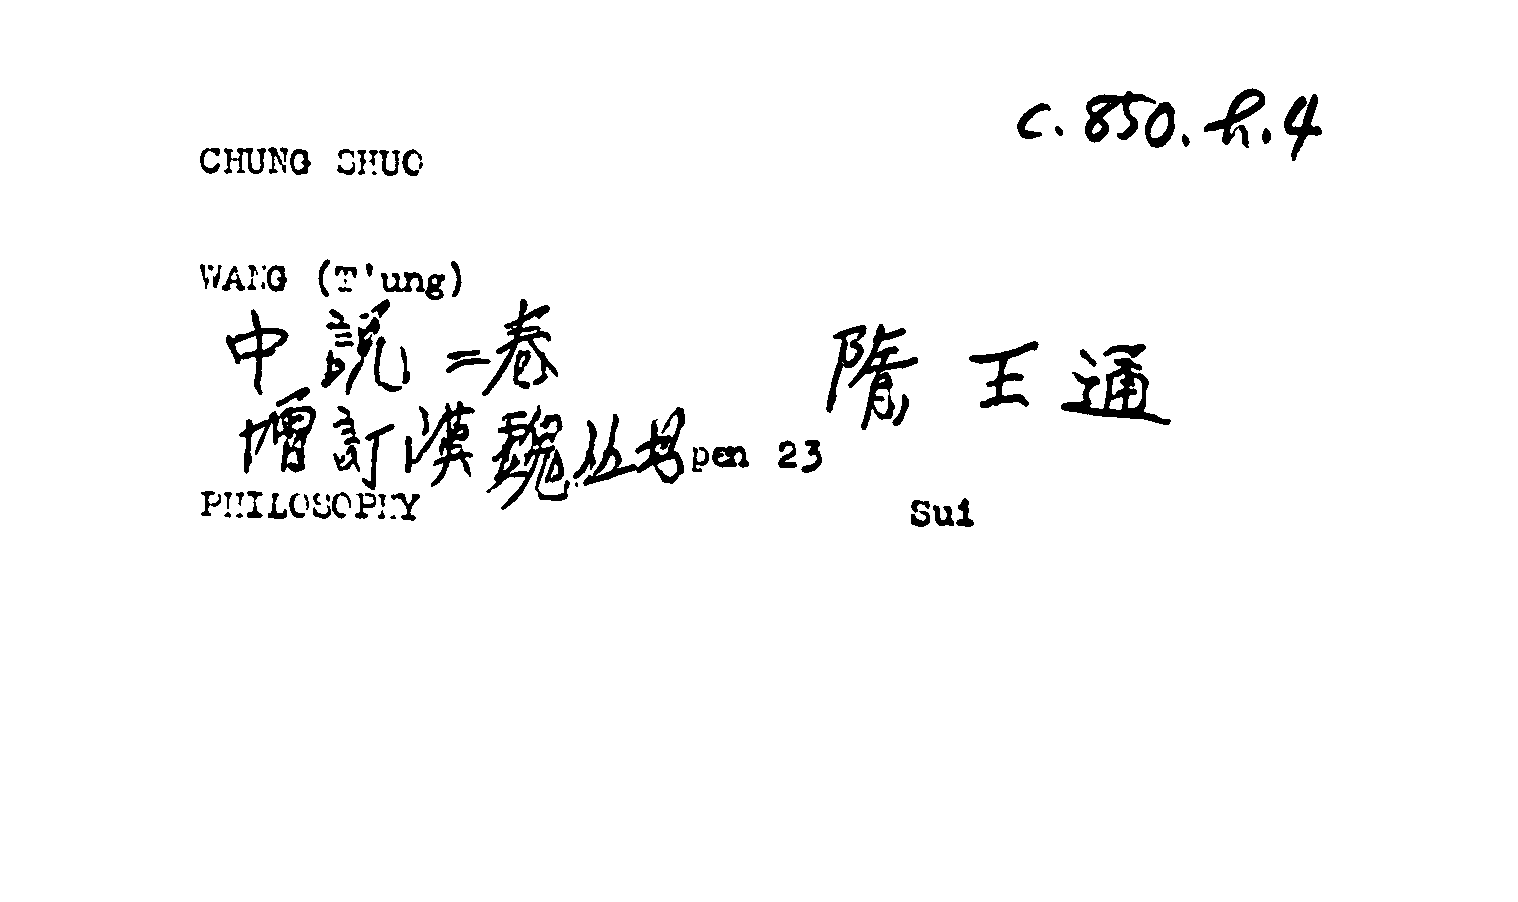 c.850.h.4
CHUNG SHUO
WANG (T'ung)
中說二卷 隋 王通
增訂漢魏丛书 pen 23
PHILOSOPHY Sui